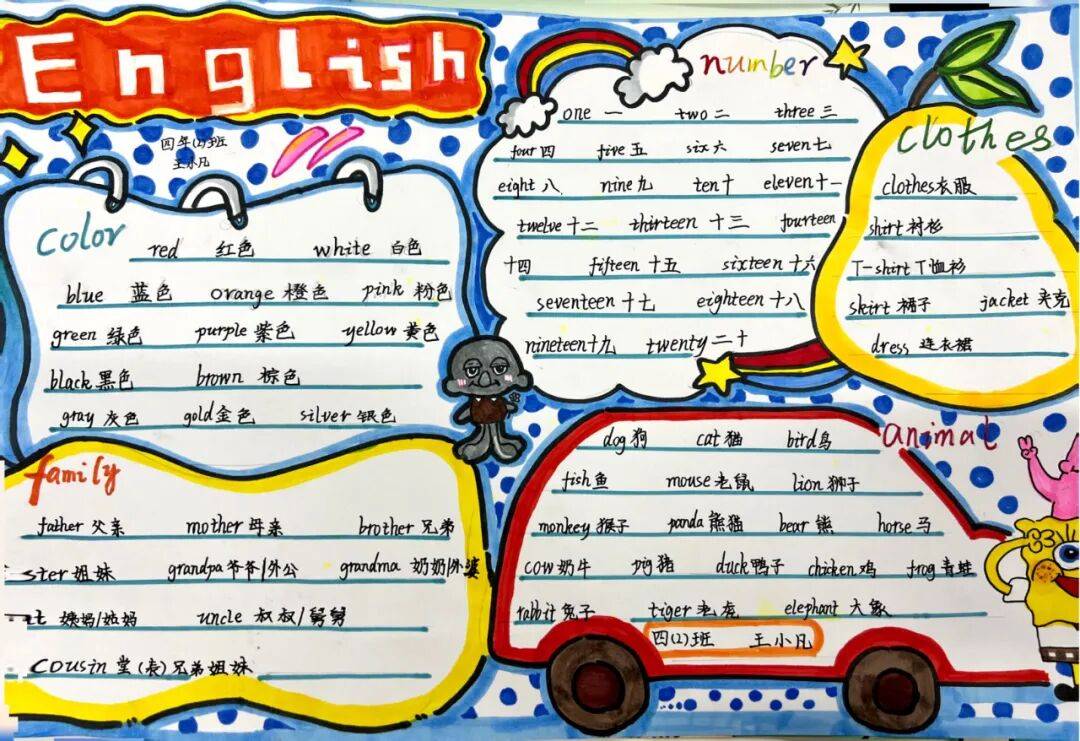 English
四年(2)班
王小凡
color
red 红色 white 白色
blue 蓝色 orange 橙色 pink 粉色
green 绿色 purple 紫色 yellow 黄色
black 黑色 brown 棕色
gray 灰色 gold 金色 silver 银色
family
father 父亲 mother 母亲 brother 兄弟
ster 姐妹 grandpa 爷爷/外公 grandma 奶奶/外婆
t 姨妈/姑妈 uncle 叔叔/舅舅
cousin 堂(表)兄弟姐妹
number
one 一 two 二 three 三
four 四 five 五 six 六 seven 七
eight 八 nine 九 ten 十 eleven 十一
twelve 十二 thirteen 十三 fourteen
十四 fifteen 十五 sixteen 十六
seventeen 十七 eighteen 十八
nineteen 十九 twenty 二十
clothes
clothes 衣服
shirt 衬衫
T-shirt T恤衫
skirt 裙子 jacket 夹克
dress 连衣裙
animal
dog 狗 cat 猫 bird 鸟
fish 鱼 mouse 老鼠 lion 狮子
monkey 猴子 panda 熊猫 bear 熊 horse 马
cow 奶牛 pig 猪 duck 鸭子 chicken 鸡 frog 青蛙
rabbit 兔子 tiger 老虎 elephant 大象
四(2)班 王小凡